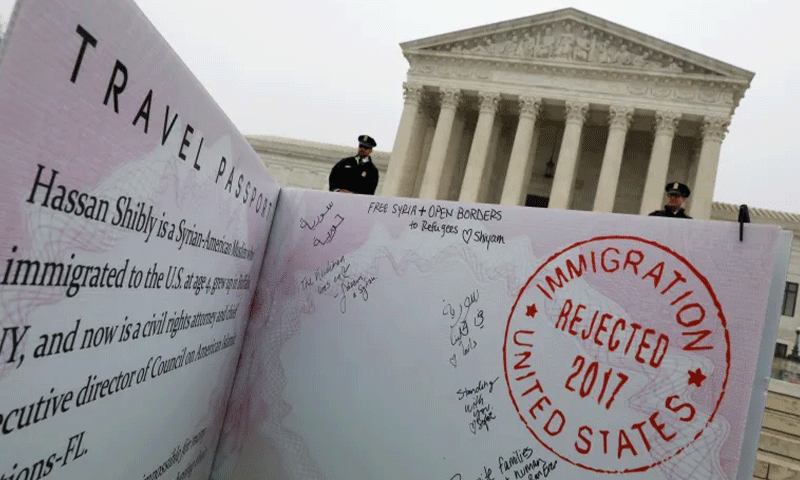 TRAVEL PASSPORT
Hassan Shibly is a Syrian-American Muslim who
immigrated to the U.S. at age 4, grew up in Buffalo
NY, and now is a civil rights attorney and chief
executive director of Council on American Islamic
tions-FL.
impossibly
سورية
حرية
FREE SYRIA + OPEN BORDERS
to Refugees ♡ Shiyam
The Revolution
سورية
Standing
with
you
families
human
IMMIGRATION
REJECTED
2017
UNITED STATES